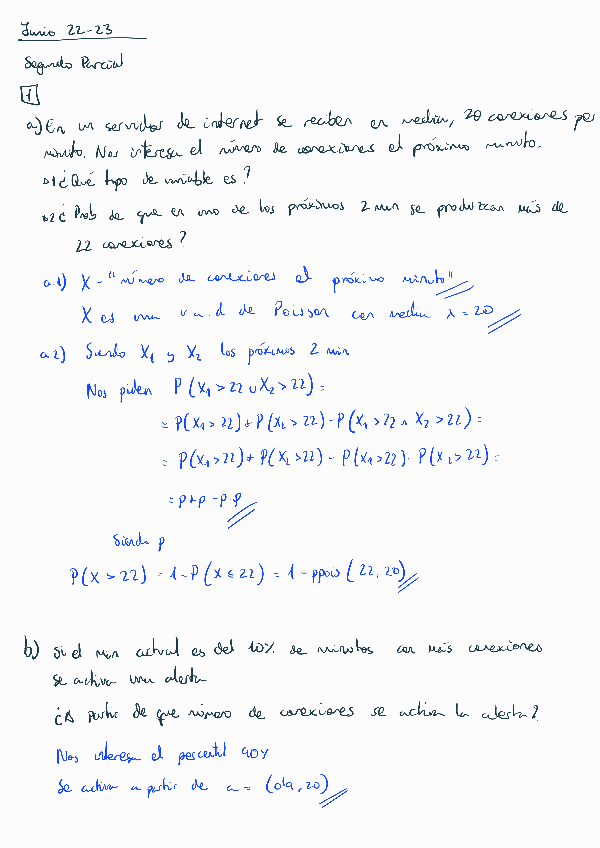 Junio 22-23
Segundo Parcial
1
a) En un servidor de internet se reciben en media, 20 conexiones por
minuto. Nos interesa el número de conexiones el próximo minuto.
a1 ¿Qué tipo de variable es?
a2 ¿Prob de que en uno de los próximos 2 min se produzcan más de
22 conexiones?
a.1) X - "número de conexiones el próximo minuto"
X es una v.a.d de Poisson con media λ = 20
a.2) Siendo X1 y X2 los próximos 2 min
Nos piden P(X1 > 22 ∪ X2 > 22) =
= P(X1 > 22) + P(X2 > 22) - P(X1 > 22 ∩ X2 > 22) =
= P(X1 > 22) + P(X2 > 22) - P(X1 > 22) · P(X2 > 22) =
= p + p - p·p
Siendo p
P(X > 22) = 1 - P(X ≤ 22) = 1 - ppois(22, 20)
b) Si el min actual es del 10% de minutos con más conexiones
se activa una alerta
¿A partir de que número de conexiones se activa la alerta?
Nos interesa el percentil 90%
Se activa a partir de a = (0'9, 20)